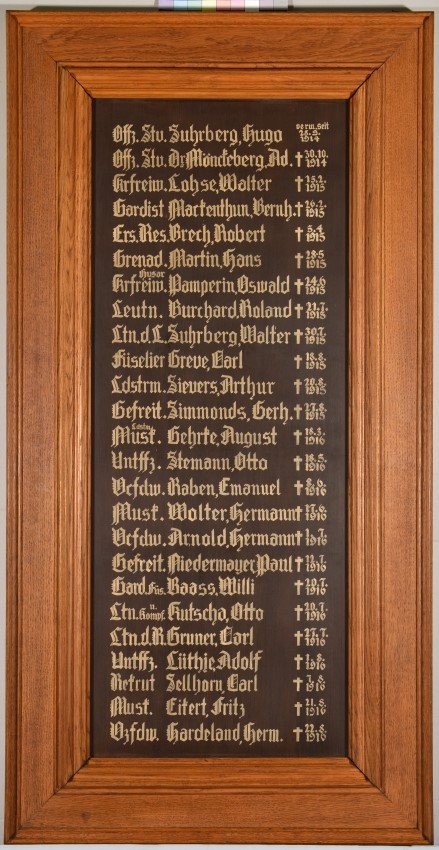 Offz. Stv. Suhrberg, Hugo verm. seit 26.9. 1914
Offz. Stv. Dr Mönckeberg, Ad. † 30.10. 1914
Krfreiw. Lohse, Walter † 15.2. 1915
Gardist Mackenthun, Bernh. † 26.2. 1915
Ers. Res. Brech, Robert † 5.4. 1915
Grenad. Martin, Hans † 28.5. 1915
Husar
Krfreiw. Pamperin, Oswald † 1915
Leutn. Burchard, Roland † 21.7. 1915
Ltn. d. L. Suhrberg, Walter † 30.7. 1915
Füselier Greve, Carl † 18.8. 1915
Ldstrm. Sievers, Arthur † 20.8. 1915
Gefreit. Simmonds, Gerh. † 27.8. 1915
Musk. Gehrke, August † 18.3. 1916
Untffz. Stemann, Otto † 18.5. 1916
Vzfdw. Raben, Emanuel † 1916
Musk. Wolter, Hermann † 1916
Vzfdw. Arnold, Hermann † 1.7. 1916
Gefreit. Niedermayer, Paul † 11.7. 1916
Gard. Füs. Baass, Willi † 20.7. 1916
Ltn. u. Kompf. Kutscha, Otto † 20.7. 1916
Ltn. d. R. Gruner, Carl † 27.7. 1916
Untffz. Lüthje, Adolf † 1.8. 1916
Rekrut Sellhorn, Carl † 7.8. 1916
Musk. Eitert, Fritz † 21.8. 1916
Vzfdw. Hardeland, Herm. † 22.8. 1916